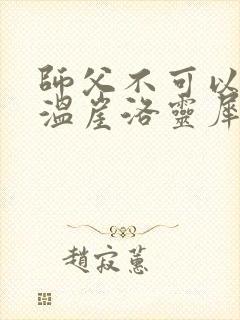 師父不可以
溫崖洛靈犀
趙寂蕙